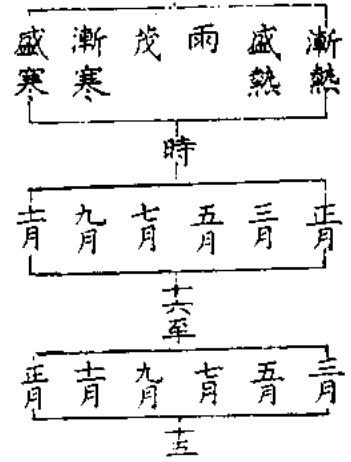 漸熱
盛熱
雨
茂
漸寒
盛寒
時
正月
三月
五月
七月
九月
十一月
十六至
三月
五月
七月
九月
十一月
正月
十五